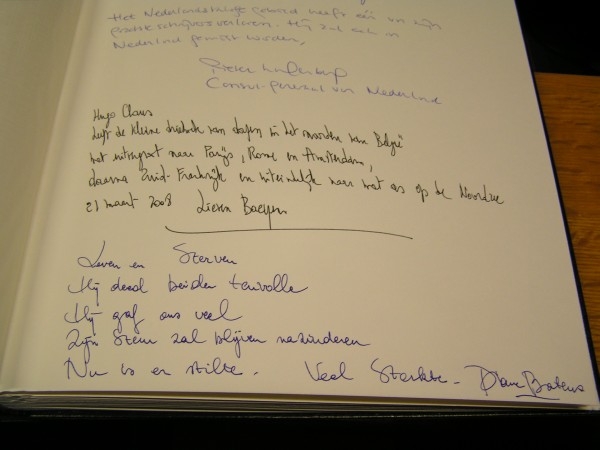 Het Nederlandstalige heeft één van zijn
schrijvers verloren. Hij zal ook in
Nederland gemist worden,
Pieter
Consul-generaal van Nederland
Hugo Claus
de kleine van in het noorden van België
met naar Parijs, Rome en Amsterdam,
daarna Zuid-Frankrijk en uiteindelijk naar wat as op de Noordzee
21 maart 2008 Lieven
Leven en Sterven
Hij deed beiden tenvolle
Hij gaf ons veel
Zijn Stem zal blijven nazinderen
Nu is er stilte. Veel Sterkte -